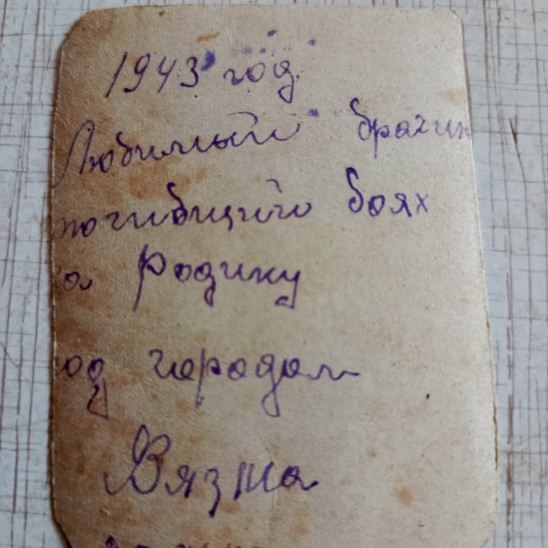 1943 год.
Любимый братик
погибший боях
за Родину
под городом
Вязма